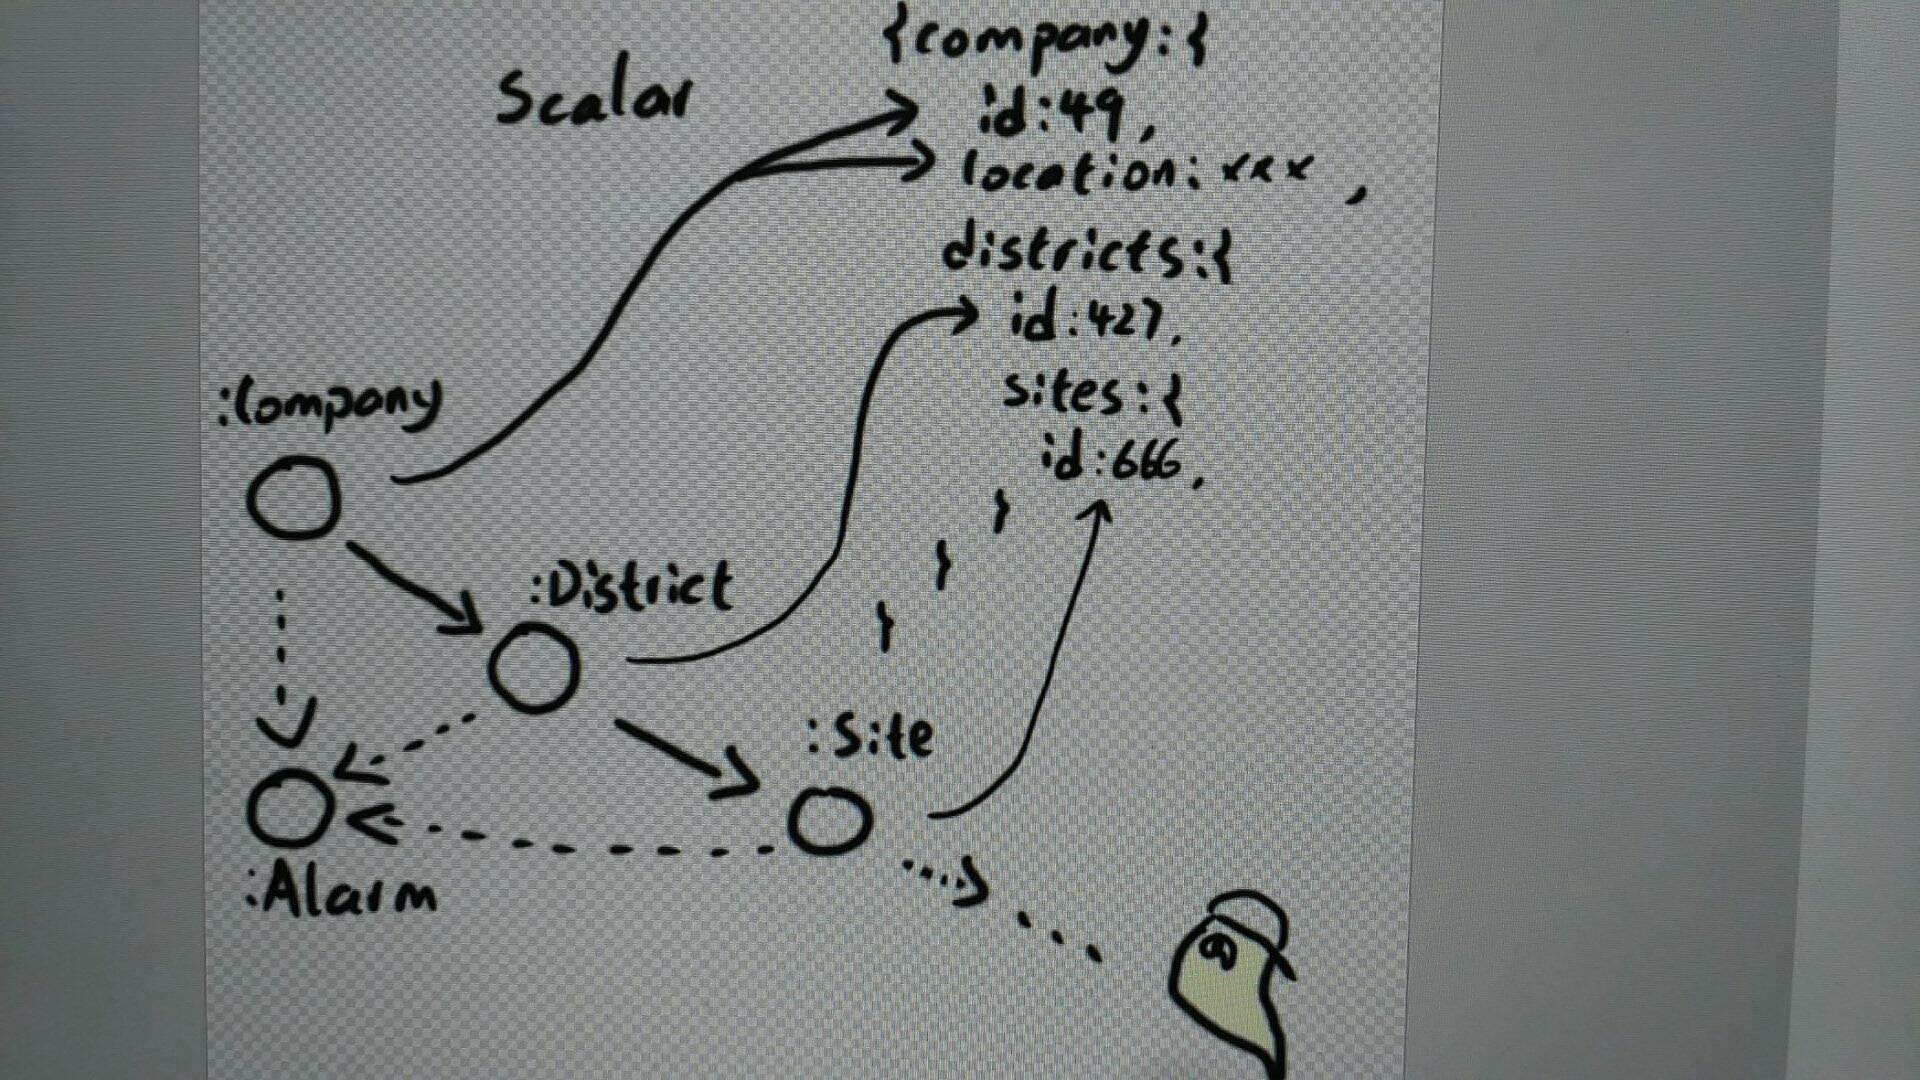 Scalar
{company:{
id:49,
location:xxx,
districts:{
id:427,
sites:{
id:666,
}
}
}
:Company
:District
:Site
:Alarm